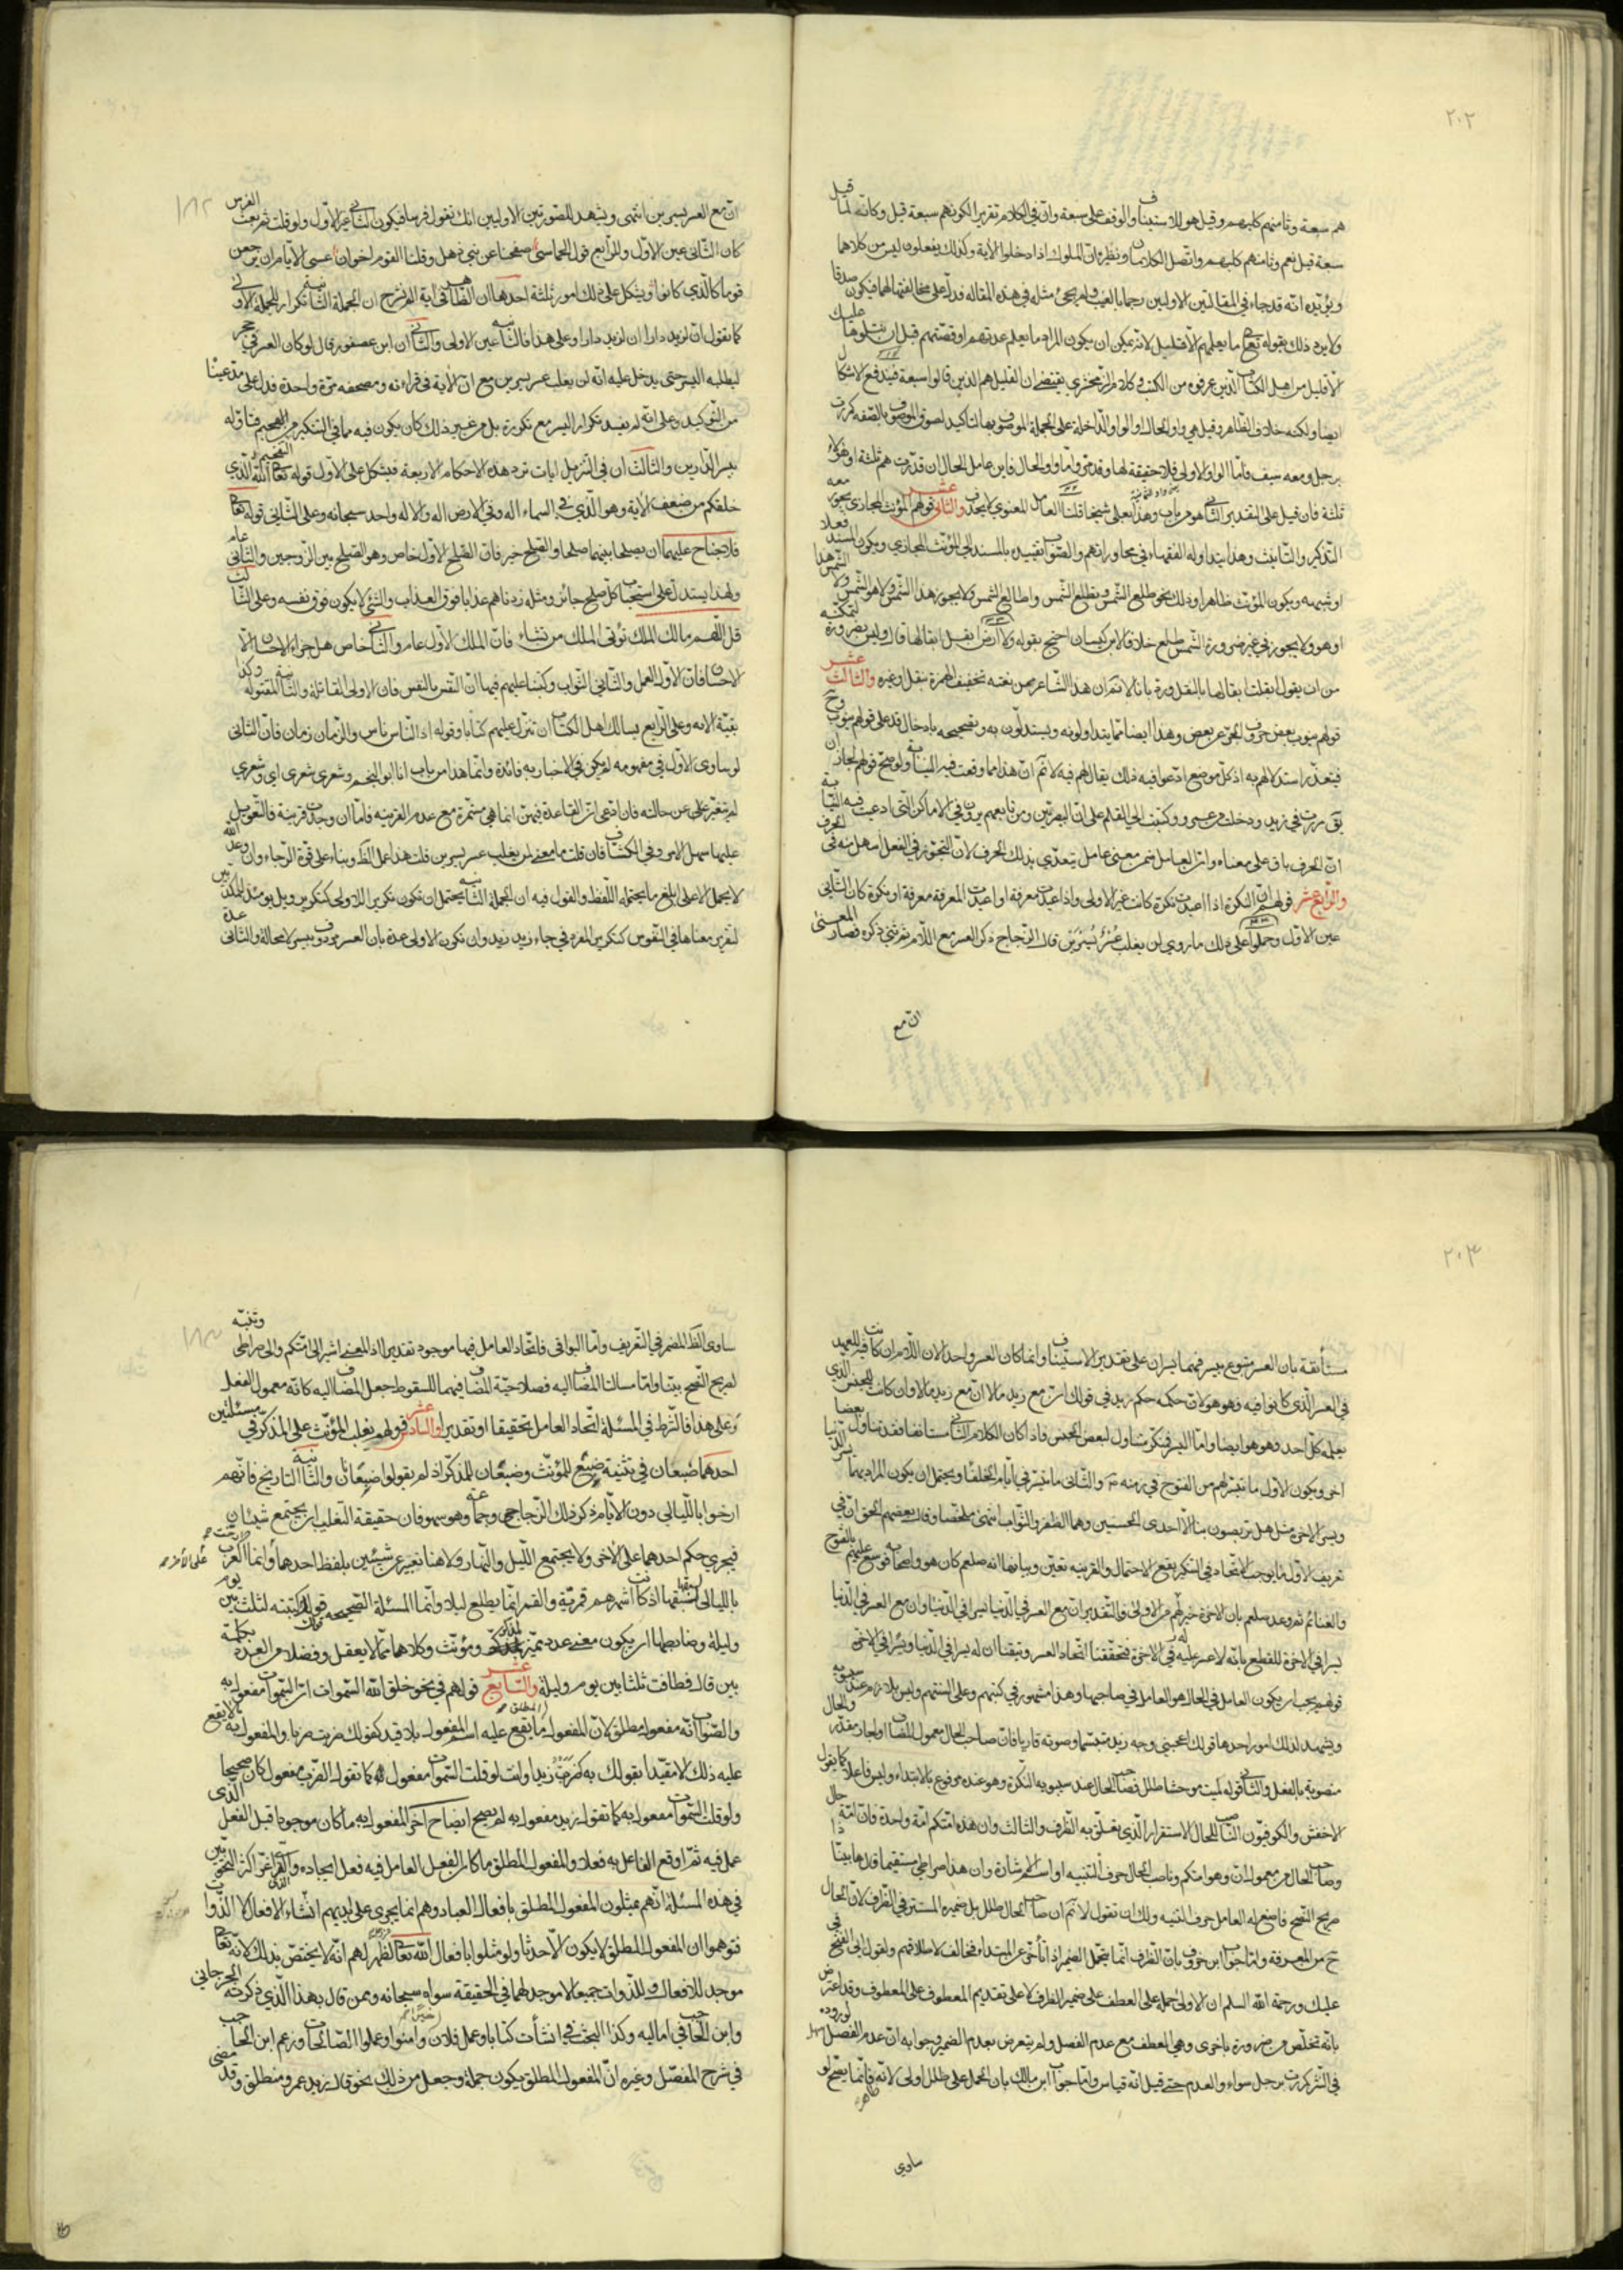 ٢٠٢
هم سبعة وثامنهم كلبهم وقيل هو للاستيناف والوقف على سبعة وان فى الكلام تقرير الكونهم سبعة قيل وكانه لما قيل
سبعة قيل نعم وثامنهم كلبهم واتصل الكلامان ونظيره ان الملوك اذا دخلوا الآية وكذلك يفعلون ليس من كلامها
ويؤيده انه قد جاء فى المقالتين الاوليين رجما بالغيب ولم يجئ مثله فى هذه المقاله فدل على مخالفتها لهما فيكون صدقا
ولا يرد ذلك بقوله تعالى ما يعلمهم الا قليل لانه يمكن ان يكون المراد ما يعلم عدتهم او قصتهم قبل ان نتلوها عليك
الا قليل من اهل الكتاب الذين عرفوه من الكتب وكلام الزمخشرى يقتضى ان القليل هم الذين قالوا سبعة فيندفع الاشكال
ايضا ولكنه خلاف الظاهر وقيل هى واو الحال او الواو الداخلة على الجملة الموصوف بها لتاكيد لصوق الموصوف بالصفه كمررت
برجل ومعه سيف فاما الواو الاولى فلا حقيقة لها وقد مر واما واو الحال فاين عامل الحال ان قدرت هم ثلثة او هؤلاء
ثلثة فان قيل على التقدير الثانى هو من باب وهذا بعلى شيخا قلنا العامل المعنوى لا يحذف والثانى عشر قولهم المؤنث المجازى يجوز معه
التذكير والتانيث وهذا يتداوله الفقهاء فى محاوراتهم والصواب تقييده بالمسند الى المؤنث المجازى ويكون المسند فعلا
او شبهه ويكون المؤنث ظاهرا وذلك نحو طلع الشمس ويطلع الشمس واطالع الشمس ولا يجوز هذا الشمس ولا هو الشمس
او هو ولا يجوز فى غير ضرورة الشمس طلع خلافا لابن كيسان احتج بقوله ولا ارض ابقل ابقالها قال وليس بضرورة لتمكنه
من ان يقول ابقلت ابقالها بالنقل ورد بانا لا نم ان هذا الشاعر ممن لغته تخفيف الهمزة بنقل وغيره والثالث عشر
قولهم ينوب بعض حروف الجر عن بعض وهذا ايضا مما يتداولونه ويستدلون به وتصحيحه بادخال قد على قولهم ينوب وح
فيتعذر استدلالهم به اذ كل موضع ادعوا فيه ذلك يقال لهم فيه لا نم ان هذا مما وقعت فيه النيابة ولو صح قولهم لجاز ان
يق مررت فى زيد ودخلت من عمرو وكتبت الى القلم على ان البصريين ومن تابعهم يرون فى الاماكن التى ادعيت فيه النيابة
ان الحرف باق على معناه وان العامل ضمن معنى عامل يتعدى بذلك الحرف لان التجوز فى الفعل اسهل منه فى الحرف
والرابع عشر قولهم ان النكرة اذا اعيدت نكرة كانت غير الاولى واذا اعيدت معرفة او اعيدت المعرفة معرفة او نكرة كان الثانى
عين الاول وحملوا على ذلك ما روى لن يغلب عسر يسرين قال الزجاج ذكر العسر مع اللام ثم ثنى ذكره فصار المعنى
ان مع
١٨٢
ان مع العسر يسرين انتهى ويشهد للصورتين الاوليين انك تقول فرسا فيكون الثانى غير الاول ولو قلت ثم بعت الفرس
كان الثانى عين الاول وللرابع قول الحماسى صفحنا عن بنى ذهل وقلنا القوم اخوان عسى الايام ان يرجعن
قوما كالذى كانوا ويشكل على ذلك امور ثلثة احدها ان الظاهر فى آية الم نشرح ان الجملة الثانية تكرار للجملة الاولى
كما تقول ان لزيد دارا ان لزيد دارا وعلى هذا فالثانية عين الاولى والثانى ان ابن عصفور قال لو كان العسر فى حجر
لطلبه اليسر حتى يدخل عليه انه لن يغلب عسر يسرين مع ان الآية فى قراءته ومصحفه مرة واحدة فدل على
من التوكيد وعلى انه لم يستفد تكرار اليسر مع تكرره بل من غير ذلك كان يكون فيه مما فى التنكير من التفخيم فتاوله
بيسر الدارين والثالث ان فى التنزيل ايات ترد هذه الاحكام الاربعة فيشكل على الاول قوله تعالى الله الذى
خلقكم من ضعف الآية وهو الذى فى السماء اله وفى الارض اله والاله واحد سبحانه وعلى الثانى قوله تعالى
فلا جناح عليهما ان يصلحا بينهما صلحا والصلح خير فان الصلح الاول خاص وهو الصلح بين الزوجين والثانى عام
ولهذا يستدل على استحباب كل صلح جائز ومثله زدناهم عذابا فوق العذاب والشئ لا يكون فوق نفسه وعلى الثالث
قل اللهم مالك الملك تؤتى الملك من تشاء فان الملك الاول عام والثانى خاص هل جزاء الاحسان الا
الاحسان فان الاول العمل والثانى الثواب وكتبنا عليهم فيها ان النفس بالنفس فان الاولى القاتلة والثانية المقتوله وكذا
بقية الايه وعلى الرابع يسالك اهل الكتاب ان تنزل عليهم كتابا وقوله اذ الناس ناس والزمان زمان فان الثانى
لو ساوى الاول فى مفهومه لم يكن فى الاخبار به فائدة وانما هذا من باب انا ابو النجم وشعرى شعرى اى وشعرى
لم يتغير على عن حالته فان ادعى ان القاعدة فيهن انما هى مستمرة مع عدم القرينة فاما ان وجدت قرينة فالتعويل
عليها سهل الامر وفى الكشاف فان قلت ما معنى لن يغلب عسر يسرين قلت هذا عمل الظاهر وبناء على قوة الرجاء وان وعد الله
لا يحمل الا على ابلغ ما يحتمله اللفظ والقول فيه ان الجملة الثانية يحتمل ان تكون تكرير للاولى كتكرير ويل يومئذ للمكذبين
لتقرير معناها فى النفوس كتكرير المفرد فى جاء زيد زيد وان تكون الاولى عدة بان العسر مردوف بيسر لا محالة والثانى عدة
٢٠٣
مستأنفة بان العسر متبوع بيسر فهما يسران على تقدير الاستيناف وانما كان العسر واحدا لان اللام ان كانت فيه للعهد
فى العسر الذى كانوا فيه فهو هو لان حكمه حكم زيد فى قولك ان مع زيد مالا ان مع زيد مالا وان كانت للجنس الذى
يعلمه كل احد فهو هو ايضا واما اليسر فمنكر متناول لبعض الجنس فاذا كان الكلام الثانى مستانفا فقد تناول بعضا
اخر ويكون الاول ما تيسر لهم من الفتوح فى زمنه والثانى ما تيسر فى ايام الخلفاء ويحتمل ان يكون المراد بهما يسر الدنيا
ويسر الاخرة مثل هل تربصون بنا الا احدى الحسنيين وهما الظفر والثواب انتهى ملخصا وقال بعضهم الحق ان فى
تعريف الاول ما يوجب الاتحاد وفى التنكير يقع الاحتمال والقرينة تعين وبيانها انه صلعم كان هو واصحابه فوسع عليهم بالفتوح
والغنائم ثم وعد صلعم بان الاخرة خير له من الاولى والتقدير ان مع العسر فى الدنيا يسرا فى الدنيا وان مع العسر فى الدنيا
يسرا فى الاخرة للقطع بانه لا عسر عليه فى الاخرة فتحققنا اتحاد العسر وتيقنا ان له يسرا فى الدنيا ويسرا فى الاخرة
قولهم يجب ان يكون العامل فى الحال هو العامل فى صاحبها وهذا مشهور فى كتبهم وعلى السنتهم وليس بلازم عند سيبويه
ويشهد لذلك امور احدها قولك اعجبنى وجه زيد متبسما وصوته قاريا فان صاحب الحال معمول المضاف او لجار مقدر والحال
منصوبة بالفعل والثانى قوله لمية موحشا طلل فصاحب الحال عند سيبويه النكرة وهو عنده مرفوع بالابتداء وليس فاعلا كما يقول
الاخفش والكوفيون الناصب للحال الاستقرار الذى تعلق به الظرف والثالث وان هذه امتكم امة واحدة فان امة حال
وصاحب الحال من معمول ان وهو امتكم وناصب الحال حرف التنبيه او اسم الاشارة وان هذا صراطى مستقيما قد ها بينا ذا
صريح النصح فاصغ له العامل حرف التنبيه ولك ان تقول لا نم ان صاحب الحال طلل بل ضميره المستتر فى الظرف لان الحال
ح من المعرفة واما جواب ابن خروف بان الظرف انما يتحمل الضمير اذا تأخر عن المبتدا فمخالف لاطلاقهم ولقول ابى الفتح فى
عليك ورحمة الله السلم ان الاولى حمله على العطف على ضمير الظرف لا على تقديم المعطوف على المعطوف وقد اعترض
بانه تخلص من ضرورة باخرى وهى العطف مع عدم الفصل ولم يتعرض بعدم الضمير وجوابه ان عدم الفصل سهل لوروده
فى النثر كمررت برجل سواء والعدم حتى قيل انه قياس واما جواب ابن مالك بان الحمل على طلل اولى لانه ظاهر فانما يصح لو
ساوى
١٨٣
ساوى الظاهر المضمر فى التعريف واما البواقى فاتحاد العامل فيها موجود تقديرا اذ المعنى اشير الى امتكم والى صراطى وتنبه
لصريح النصح بينا واما مسالة المضاف اليه فصلاحية المضاف فيهما للسقوط جعل المضاف اليه كانه معمول الفعل
وعلى هذا فالشرط فى المسئلة اتحاد العامل تحقيقا او تقديرا والسادس عشر قولهم يغلب المؤنث على المذكر فى مسئلتين
احدهما ضبعان فى تثنية ضبع للمؤنث وضبعان للمذكر اذ لم يقولوا ضبعانان والثانية التاريخ فانهم
ارخوا بالليالى دون الايام ذكر ذلك الزجاجى وجماعة وهو سهو فان حقيقة التغليب ان يجتمع شيئان
فيجرى حكم احدهما على الاخر ولا يجتمع الليل والنهار ولا هنا تعبير عن شيئين بلفظ احدهما وانما ارخت العرب
بالليالى لسبقها اذ كانت اشهرهم قمرية والقمر انما يطلع ليلا وانما المسئلة الصحيحه قولك كتبته لثلث بين يوم
وليلة وضابطها ان يكون معنى عدد مميز بمذكر ومؤنث وكلاهما مما لا يعقل وفضلا من العدد بكلمة
بين قال فطافت ثلثا بين يوم وليلة والسابع عشر قولهم فى نحو خلق الله السموات ان السموات مفعول به
والصواب انه مفعول مطلق لان المفعول المطلق ما يقع عليه اسم المفعول بلا قيد كقولك ضربت ضربا والمفعول به ما لا يقع
عليه ذلك الا مقيدا بقولك به كضربت زيدا وانت لو قلت السموات مفعول كما تقول الضرب مفعول كان صحيحا
ولو قلت السموات مفعول به كما تقول زيد مفعول به لم يصح ايضاح آخر المفعول به ما كان موجودا قبل الفعل الذى
عمل فيه ثم اوقع الفاعل به فعلا والمفعول المطلق ما كان الفعل العامل فيه فعل ايجاده والذى غر اكثر النحويين
فى هذه المسئلة انهم يمثلون المفعول المطلق بافعال العباد وهم انما يجرى على ايديهم انشاء الافعال لا الذوات
فتوهموا ان المفعول المطلق لا يكون الا حدثا ولو مثلوا بافعال الله تعالى لظهر لهم انه لا يختص بذلك لانه تعالى
موجد للافعال والذوات جميعا لا موجد لهما فى الحقيقة سواه سبحانه وممن قال بهذا الذى ذكرته الجرجانى
وابن الحاجب فى اماليه وكذا البحث فى انشأت كتابا وعمل فلان خيرا وآمنوا وعملوا الصالحات وزعم ابن الحاجب
فى شرح المفصل وغيره ان المفعول المطلق يكون جملة وجعل من ذلك نحو قال زيد عمرو منطلق وقد مضى